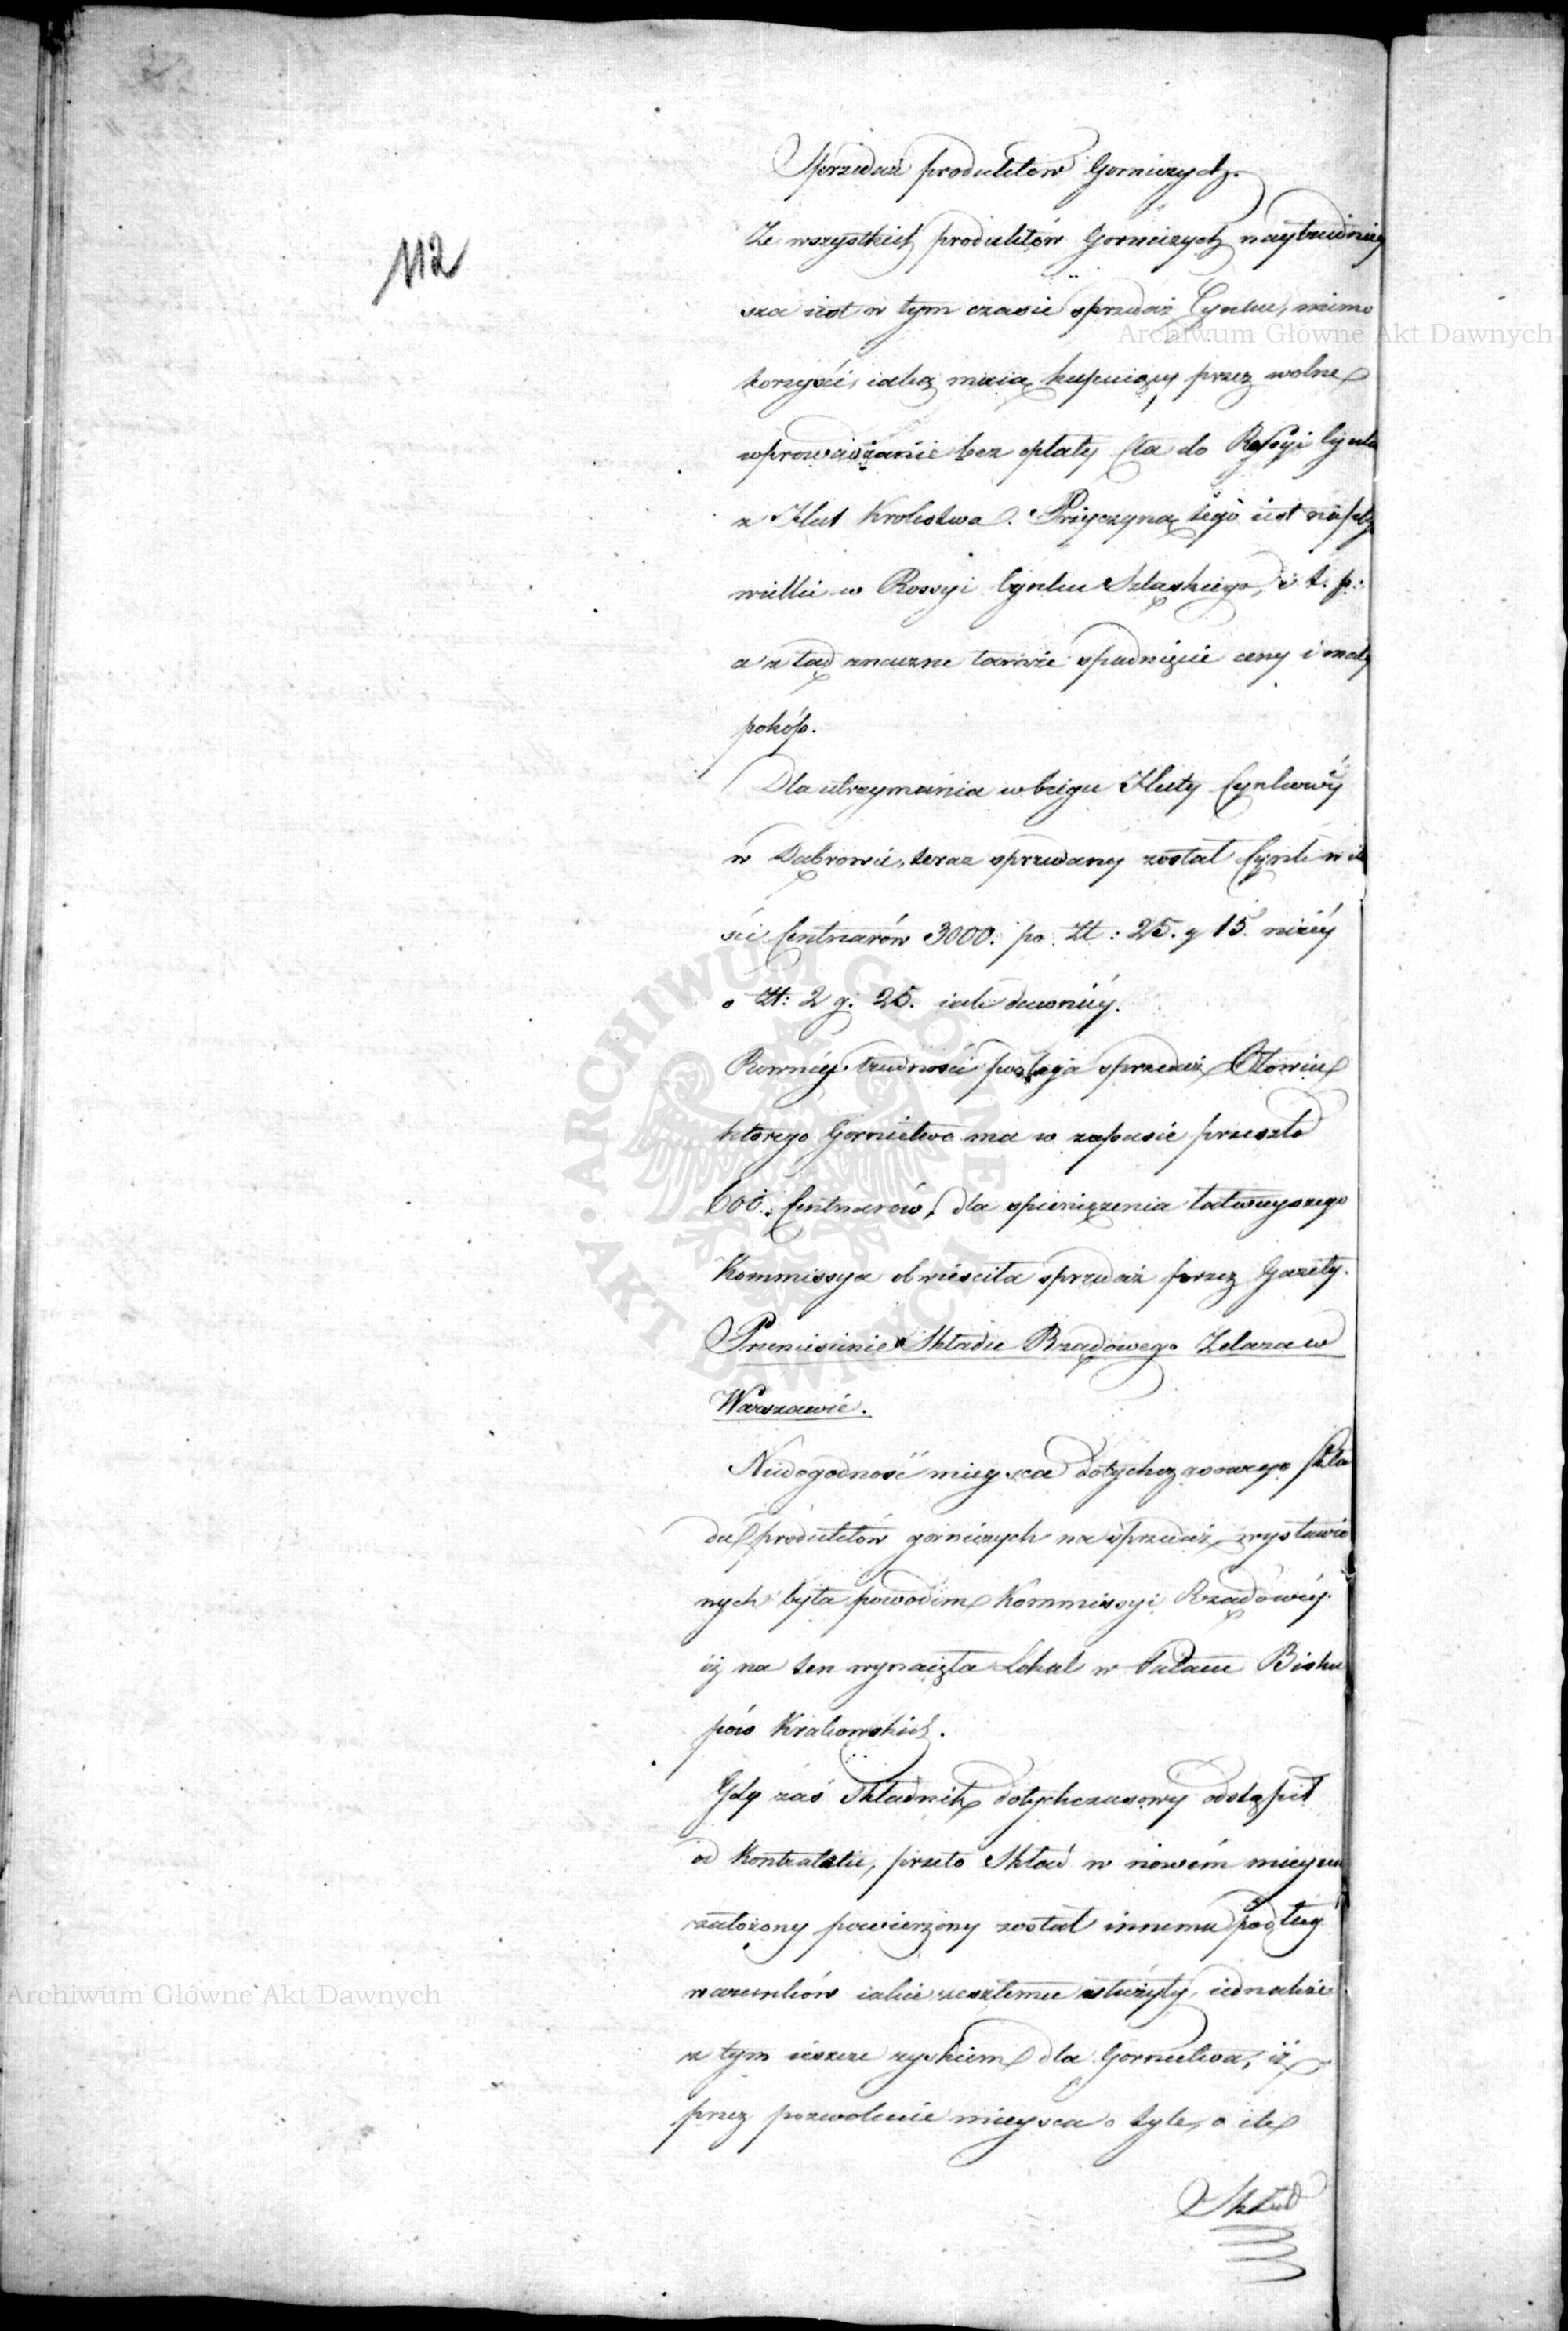 Sprzedaż produktów Gorniczych.
112
Ze wszystkich produktów Gorniczych naytrudniey
sza iest w tym czasie sprzedaż Cynku, mimo
Archiwum Główne Akt Dawnych
korzyści iaką maią kupuiący przez wolne
wprowadzanie bez opłaty Cła do Rossyi Cynku
z Hut Krolestwa. Przyczyną tego iest
wielkie w Rossyi Cynku Szląskiego, i t. p:
a z tąd znaczne tamże spadnięcie ceny i mały
pokup.
Dla utrzymania w biegu Huty Cynkowéy
w Dąbrowie, teraz sprzedany został Cynk w ilo
ści Centnarów 3000. po Zł: 25. g 15. niżéy
o Zł: 2 g. 25. iak dawniéy.
Rowney trudności podlega sprzedaż Ołowiu
ktorego Gornictwo ma w zapasie przeszło
600. Centnarów, dla spieniężenia łatwieyszego
Kommissya obwieściła sprzedaż przez Gazety.
Przeniesienie Składu Rządowego Zelaza w
Warszawie.
Niedogodność mieysca dotychczasowego Skła
du produktów gorniczych na sprzedaż wystawio
nych była powodem Kommissyi Rządowéy.
iż na ten wynaięła Lokal w Pałacu Bisku
pów Krakowskich.
Gdy zaś Składnik dotychczasowy odstąpił
od Kontraktu, przeto Skład w nowém mieyscu
założony powierzony został innemu podług
warunków iakie zeszłemu służyły, iednakże
Archiwum Główne Akt Dawnych
z tym ieszcze zyskiem dla Gornictwa, iż
przez pozwolenie mieysca o tyle, o ile
Skład
ARCHIWUM GŁÓWNE AKT DAWNYCH